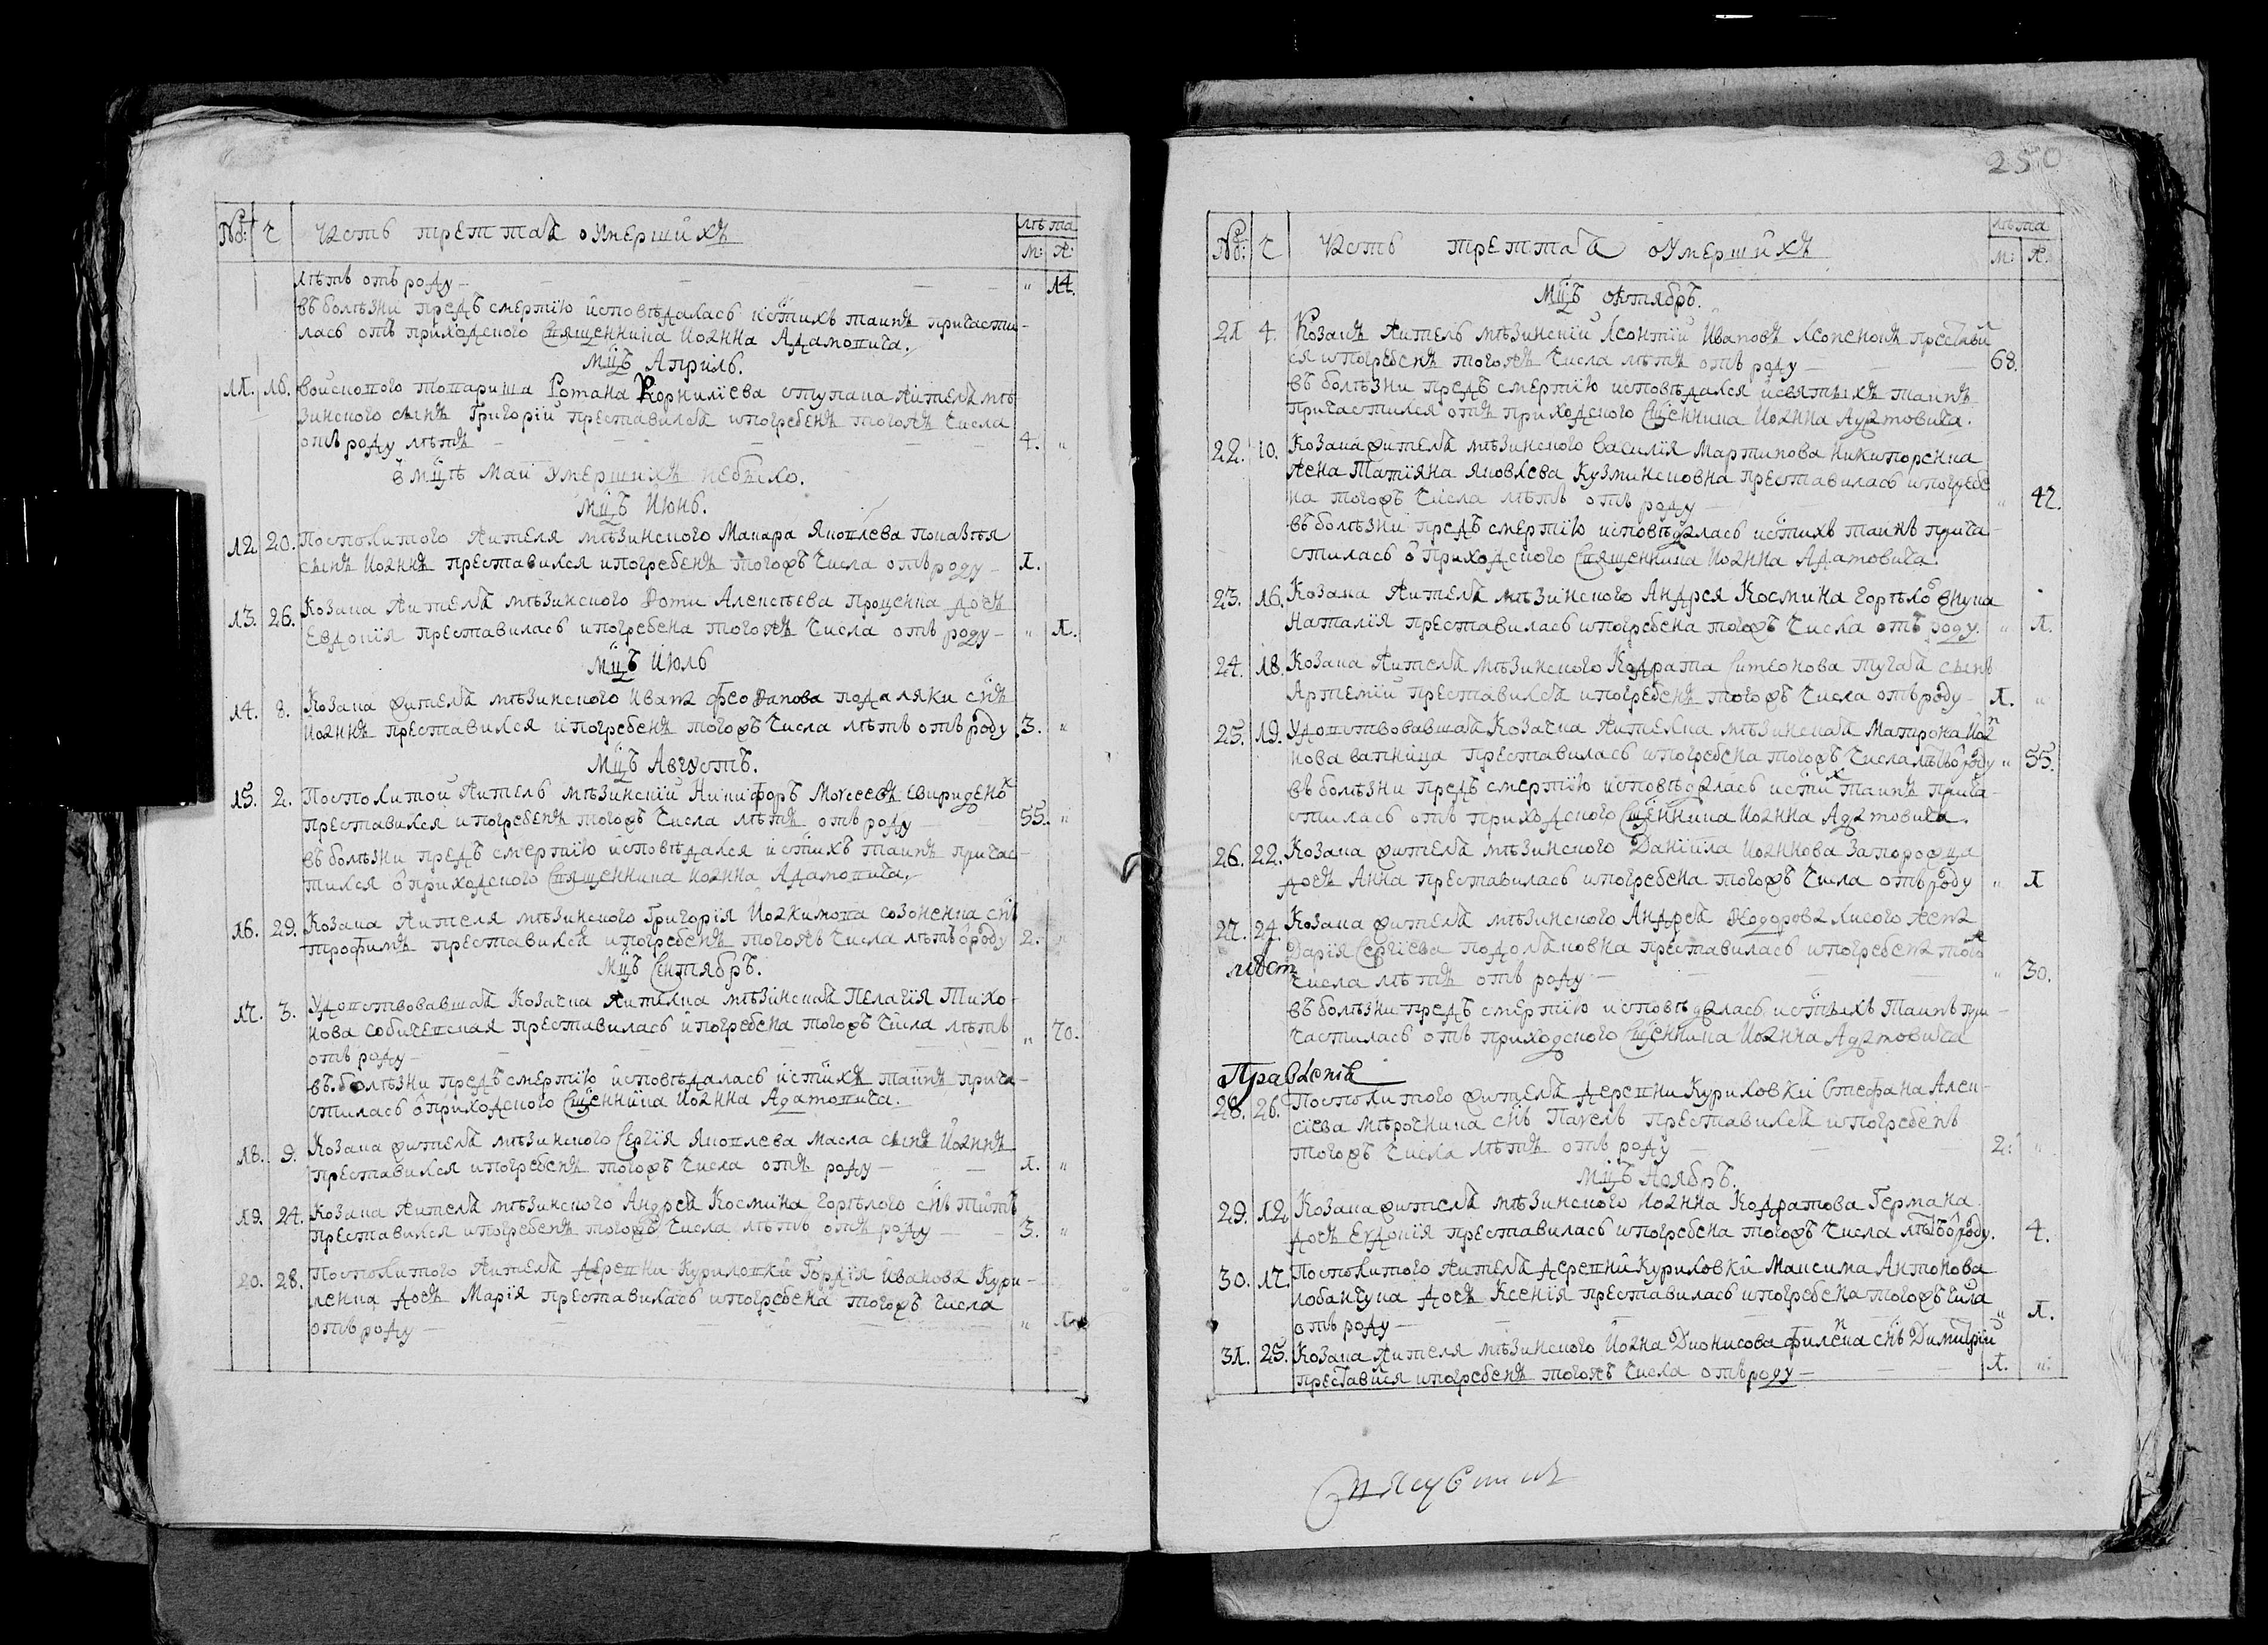 №: Ч Часть треттая оумершихъ лѣта
М: Ж:
лѣтъ отъ роду — „ 14.
въ болѣзни предъ смертїю исповѣдалась и стихъ таинъ причасти-
лась отъ приходского священника Иоанна Адамовича.
Мцъ Априль.
11. 16. войскового товариша Романа Корнилїева ступака жителя мѣ
зинского сынъ Григорїй преставился и погребенъ тогожъ числа
отъ роду лѣтъ — 4. „
в мцѣ маи умершихъ небыло.
Мцъ Июнь.
12. 20. Посполитого жителя мѣзинского Макара Яковлева
сынъ Иоаннъ преставился и погребенъ тогожъ числа отъ роду — 1.
13. 26. Козака жителя мѣзинского Фоми Алексѣева Проценка дочъ
Евдокїя преставилась и погребена тогожъ числа отъ роду — „ 1.
Мцъ Июль
14. 8. Козака жителя мѣзинского Ивана подаляки снъ
Иоаннъ преставился и погребенъ тогожъ числа лѣтъ отъ роду 3. „
Мцъ Августъ.
15. 2. Посполитой житель мѣзинскїй Никифоръ Моисеевъ свириденко
преставился и погребенъ тогожъ числа лѣтъ отъ роду — 55. „
въ болѣзни предъ смертїю исповѣдался и стихъ таинъ причас-
тился о приходского священника Иоанна Адамовича.
16. 29. Козака жителя мѣзинского Григорїя Иоакимова созоненка снъ
трофимъ преставился и погребенъ тогожъ числа лѣтъ о роду 2. „
Мцъ Сентябръ.
17. 3. Удовствовавшая Козачка жителка мѣзинская Пелагїя Тихо-
нова преставилась и погребена тогожъ числа лѣтъ
отъ роду — „ 70.
въ болѣзни предъ смертїю исповѣдалась и стихъ таинъ прича-
стилась о приходского сщенника Иоанна Адамовича.
18. 9. Козака жителя мѣзинского Сергїя Яковлева Масла сынъ Иоаннъ
преставился и погребенъ тогожъ числа отъ роду — 1. „
19. 24. Козака жителя мѣзинского Андрея Космина горѣлого снъ Титъ
преставился и погребенъ тогожъ числа лѣтъ отъ роду — 3. „
20. 28. Посполитого жителя деревни Куриловки Гордїя Иванова Кури-
ленка дочъ Марїя преставилась и погребена тогожъ числа
отъ роду — „ 1.
250
№: Ч Часть треттая оумершихъ лѣта
М: Ж:
Мцъ октябръ.
21. 4. Козакъ житель мѣзинскїй Леонтїй Ивановъ преставил
ся и погребенъ тогожъ числа лѣтъ отъ роду — 68.
въ болѣзни предъ смертїю исповѣдался и святыхъ таинъ
причастился отъ приходского сщенника Иоанна Адамовича.
22. 10. Козака жителя мѣзинского василїя Мартинова Никипоренка
жена Татїяна Яковлева Кузминковна преставилась и погребе
на тогожъ числа лѣтъ отъ роду — „ 47.
въ болѣзни предъ смертїю исповѣдалась и стихъ таинъ прича-
стилась о приходского священника Иоанна Адамовича.
23. 16. Козака жителя мѣзинского Андрея Космина горѣлого внука
Наталїя преставилась и погребена тогожъ числа отъ роду. „ 1.
24. 18. Козака жителя мѣзинского Кодрата Симеонова тугая сынъ
Артемїй преставился и погребенъ тогожъ числа отъ роду — 1. „
25. 19. Удовствовавшая Козачка жителка мѣзинская Матрона Иоан
нова преставилась и погребена тогожъ числа лѣтъ о роду „ 55.
въ болѣзни предъ смертїю исповѣдалась и стихъ таинъ прича-
стилась отъ приходского сщенника Иоанна Адамовича.
26. 22. Козака жителя мѣзинского Данїила Иоаннова запорожца
дочъ Анна преставилась и погребена тогожъ числа отъ роду „ 1
27. 24. Козака жителя мѣзинского Андрея Ѳеодорова лисого жена
Дарїя Сергїева подоляковна преставилась и погребена тогож
числа лѣтъ отъ роду — „ 30.
въ болѣзни предъ смертїю исповѣдалась и стыхъ таинъ при-
частилась отъ приходского сщенника Иоанна Адамовича
Правленїя
28. 26. Посполитого жителя деревни Куриловки Стефана Алек-
сїева снъ Павелъ преставился и погребенъ
тогожъ числа лѣтъ отъ роду — 2. „
Мцъ Ноябръ.
29. 12. Козака жителя мѣзинского Иоанна Кодратова Германа
дочъ Евдокїя преставилась и погребена тогожъ числа лѣтъ о роду. 4.
30. 17. Посполитого жителя деревни Куриловки Максима Антонова
лобанчука дочъ Ксенїя преставилась и погребена тогожъ числа
отъ роду — „ 1.
31. 25. Козака жителя мѣзинского Иоана Дионисова снъ Димитрїй
преставися и погребенъ тогожъ числа отъ роду — 1. „